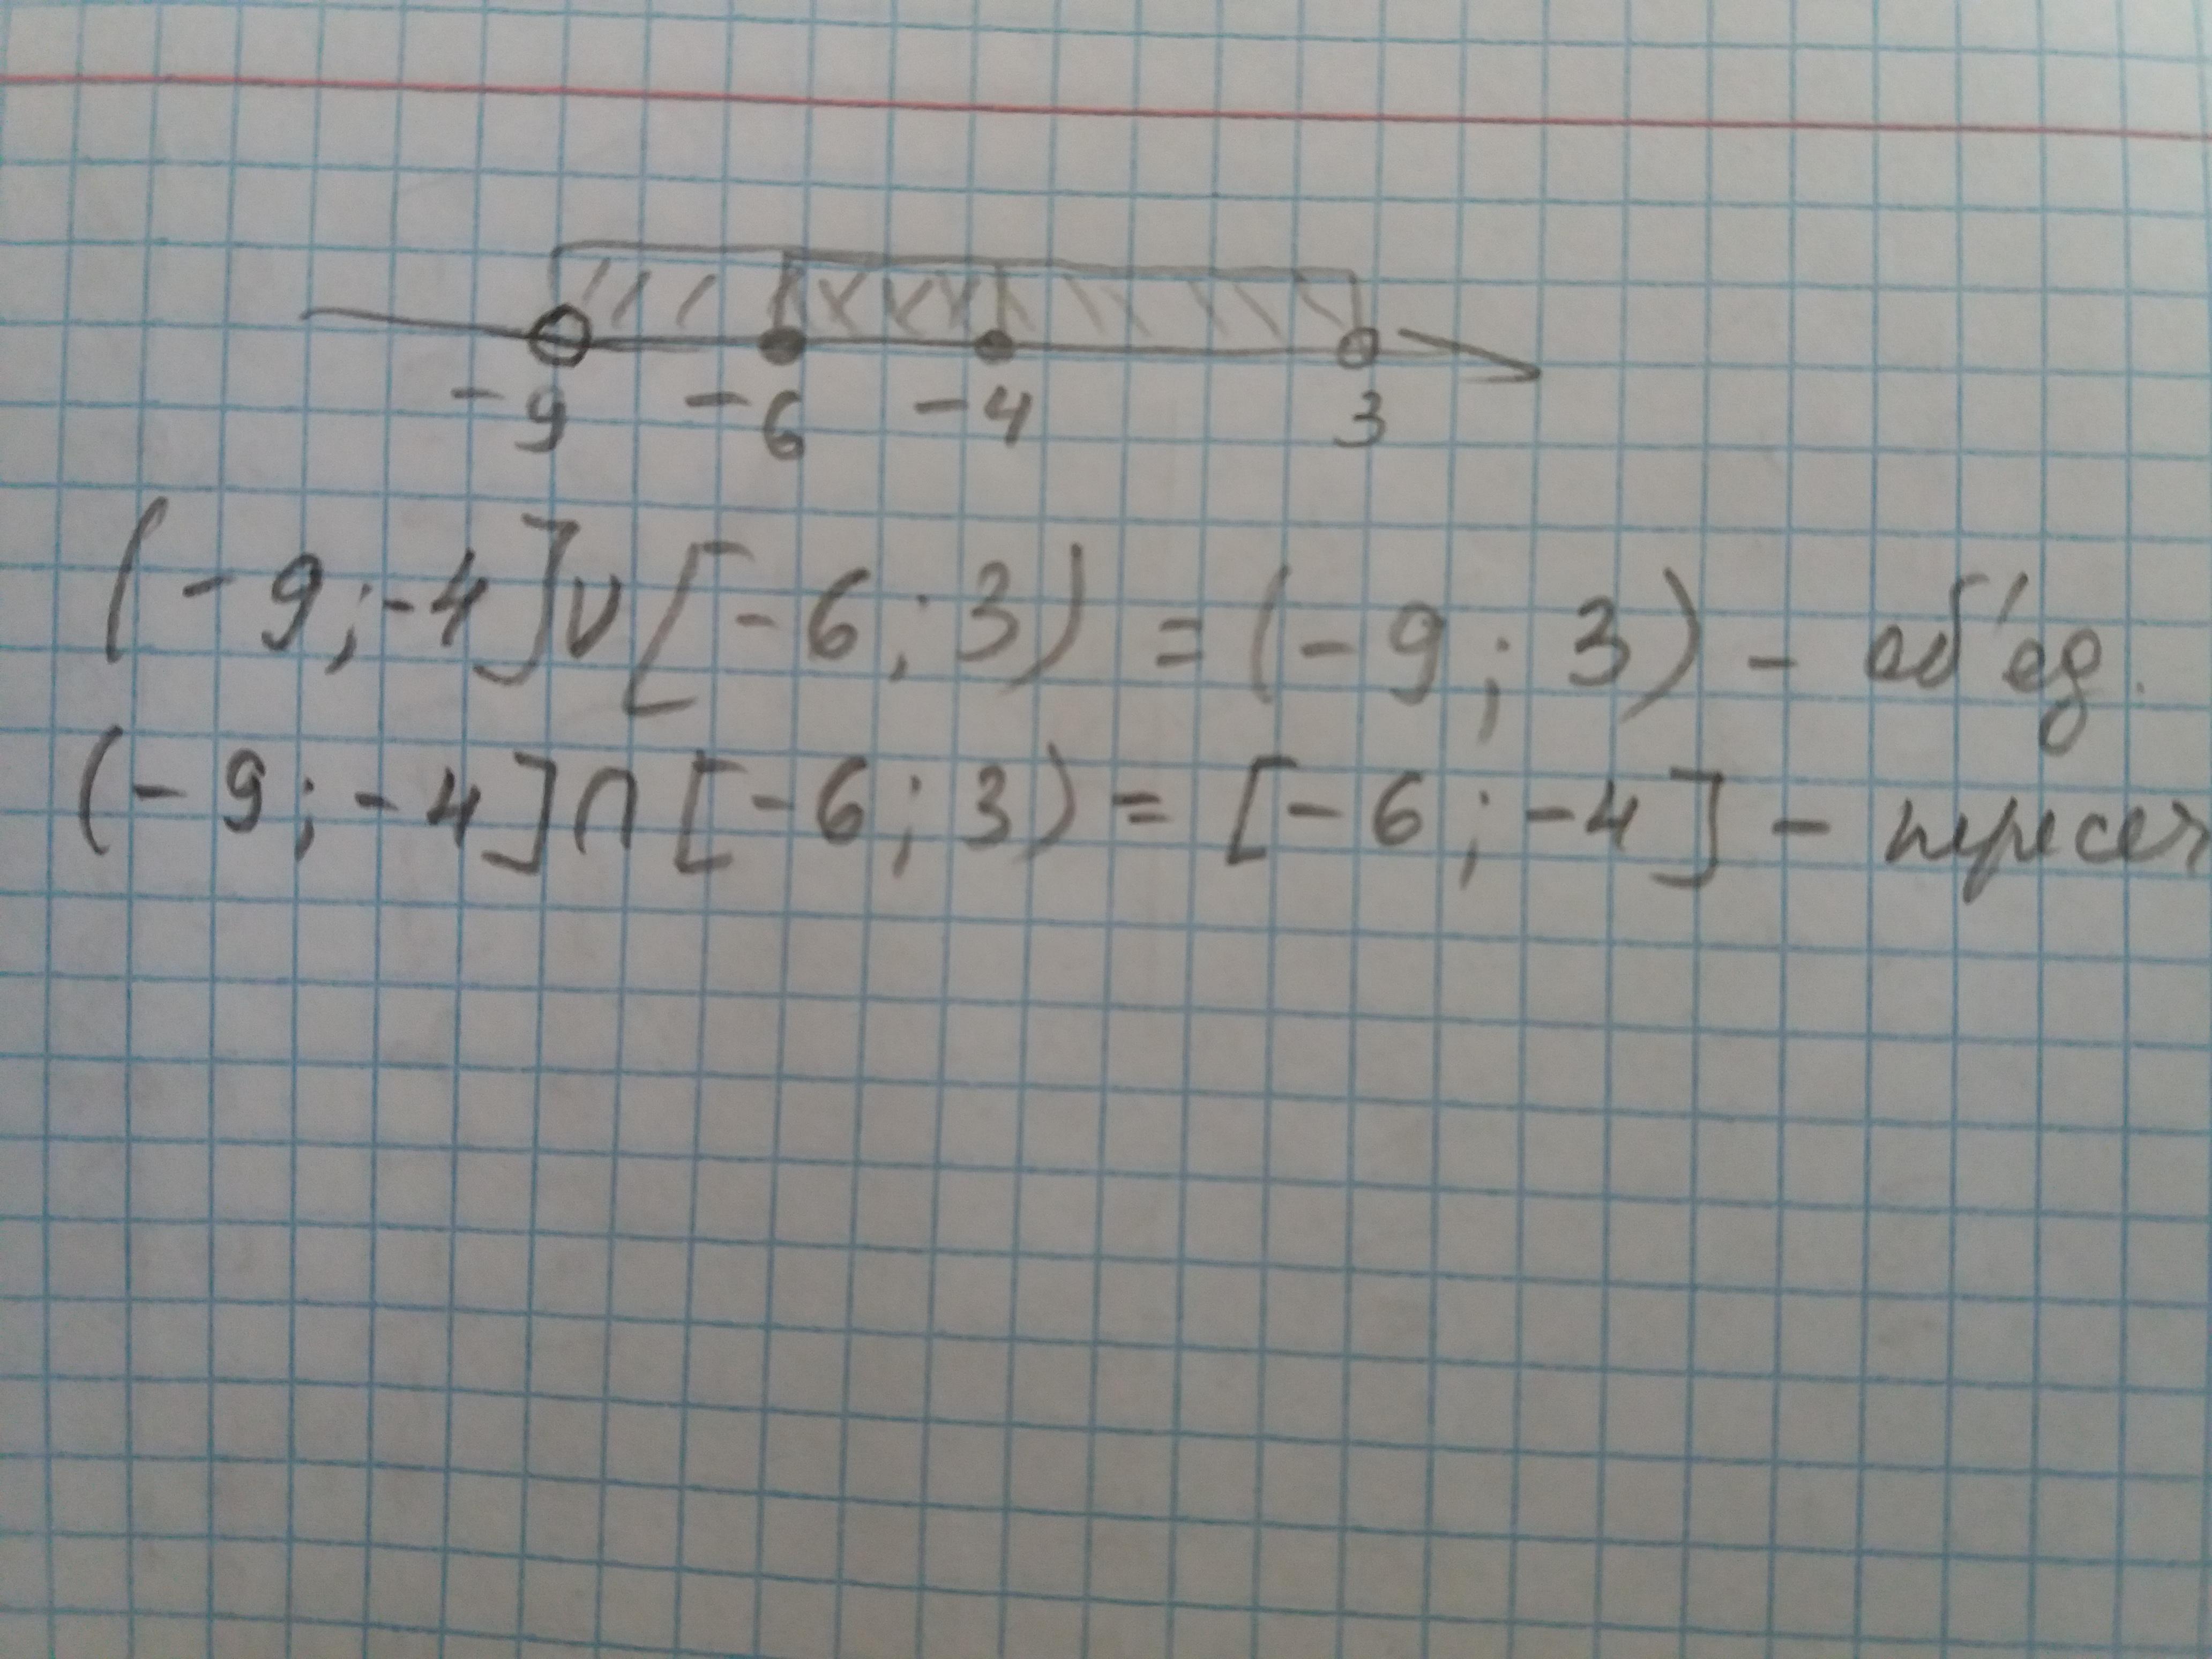 -9 -6 -4 3
(-9;-4]∪[-6;3) = (-9;3) - об'ед.
(-9;-4]∩[-6;3) = [-6;-4] - пересеч